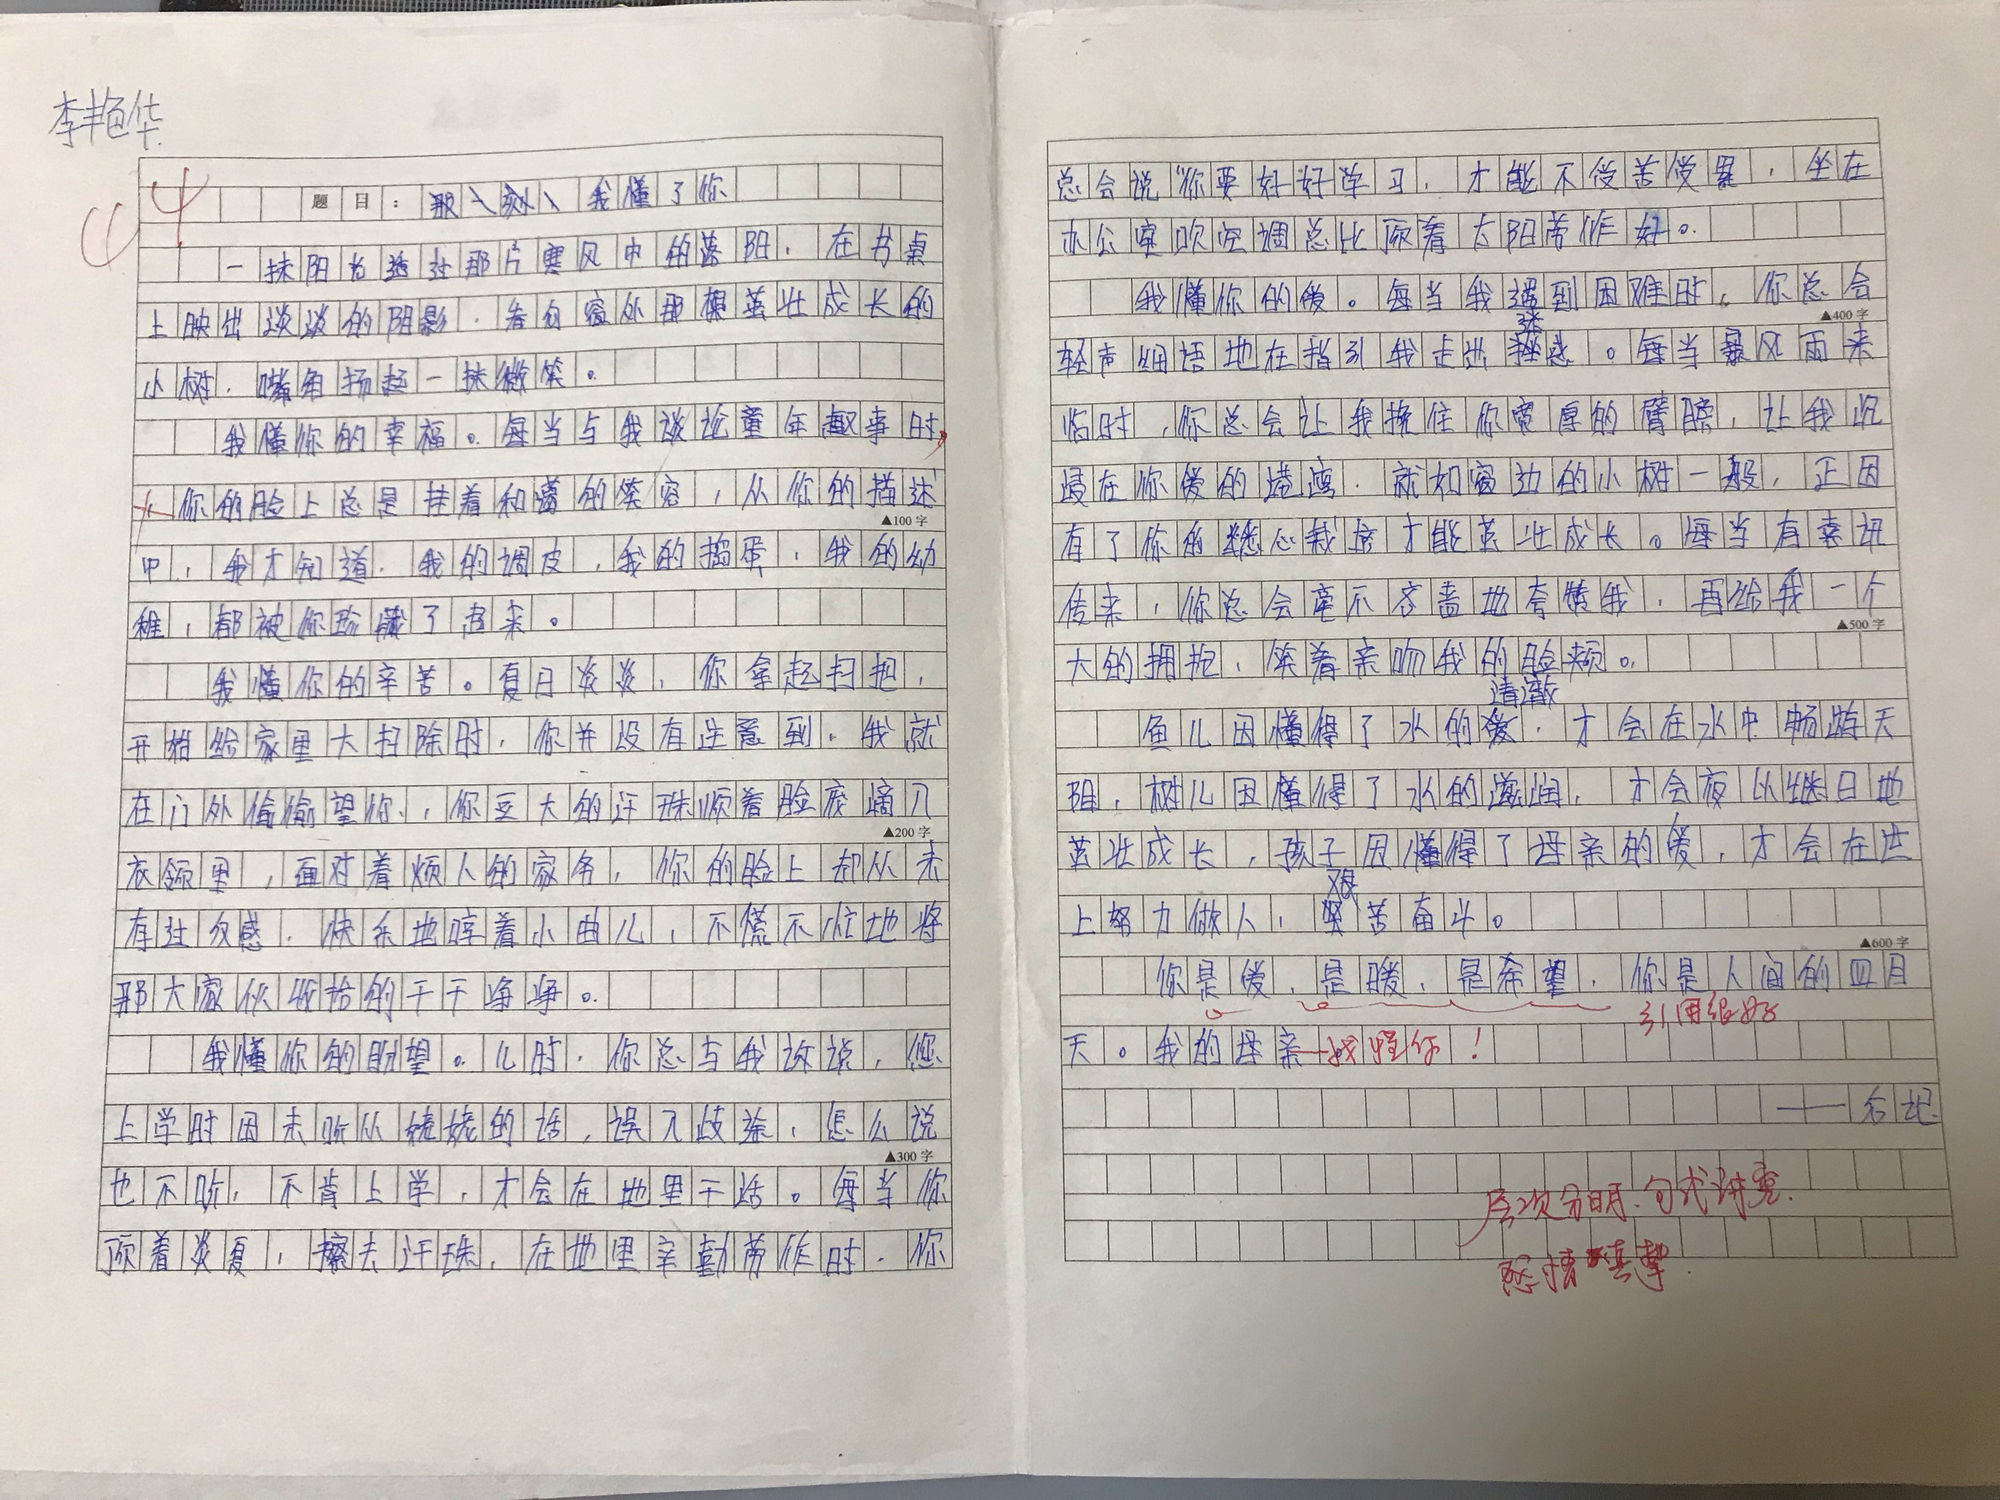 李艳华
题目：那一刻，我懂了你
一抹阳光透过那片寒风中的落阳，在书桌
上映出淡淡的阴影。看向窗外那棵茁壮成长的
小树，嘴角扬起一抹微笑。
我懂你的幸福。每当与我谈论童年趣事时，
你的脸上总是挂着和蔼的笑容，从你的描述
中，我才知道，我的调皮，我的捣蛋，我的幼
稚，都被你珍藏了起来。
我懂你的辛苦。夏日炎炎，你拿起扫把，
开始给家里大扫除时，你并没有注意到，我就
在门外偷偷望你，你豆大的汗珠顺着脸庞滴入
衣领里，面对着烦人的家务，你的脸上却从未
有过反感，快乐地哼着小曲儿，不慌不忙地将
那大家伙收拾的干干净净。
我懂你的盼望。儿时，你总与我诉说，您
上学时因未听从姥姥的话，误入歧途，怎么说
也不听，不肯上学，才会在地里干活。每当你
顶着炎夏，擦去汗珠，在地里辛勤劳作时，你
▲100字
▲200字
▲300字
总会说“你要好好学习，才能不受苦受累，坐在
办公室吹空调总比顶着太阳劳作好。
我懂你的爱。每当我遇到困难时，你总会
轻声细语地在指引我走出迷惑。每当暴风雨来
临时，你总会让我挽住你宽厚的臂膀，让我沉
浸在你爱的港湾，就如窗边的小树一般，正因
有了你的悉心栽培才能茁壮成长。每当有喜讯
传来，你总会毫不吝啬地夸赞我，再给我一个
大的拥抱，笑着亲吻我的脸颊。
鱼儿因懂得了水的清澈，才会在水中畅游天
阳，树儿因懂得了水的滋润，才会夜以继日地
茁壮成长，孩子因懂得了母亲的爱，才会在世
上努力做人，艰苦奋斗。
你是爱，是暖，是希望，你是人间的四月
引用得好
天。我的母亲——我懂你！
——后记
▲400字
▲500字
▲600字
层次分明，句式讲究，
感情真挚。